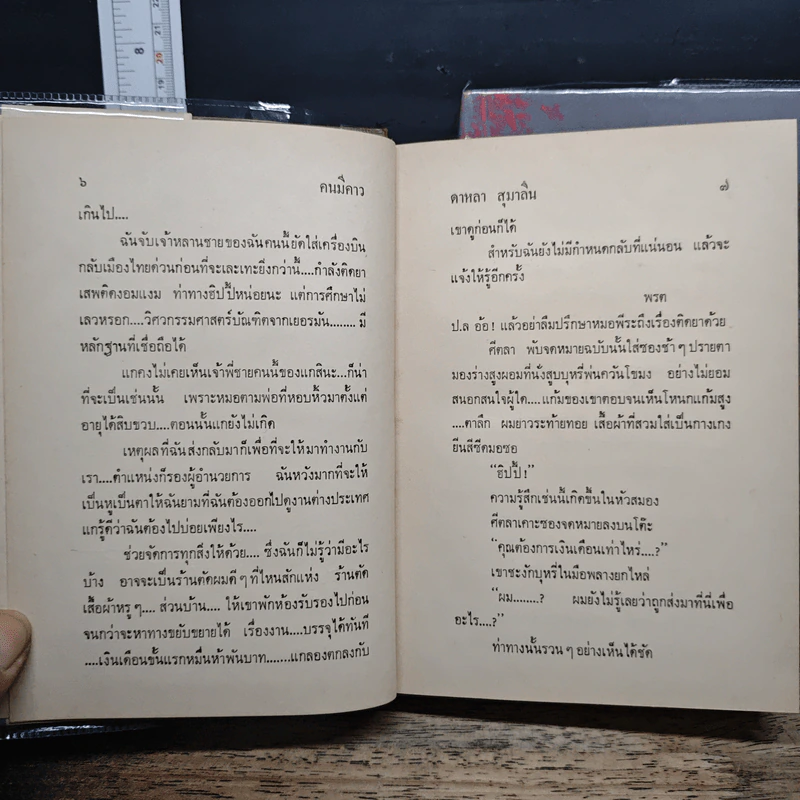 ๖ คนมีคาว
เกินไป....
ฉันจับเจ้าหลานชายของฉันคนนี้ยัดใส่เครื่องบิน
กลับเมืองไทยด่วนก่อนที่จะเละเทะยิ่งกว่านี้....กำลังติดยา
เสพติดงอมแงม ท่าทางฮิปปี้หน่อยนะ แต่การศึกษาไม่
เลวหรอก....วิศวกรรมศาสตร์บัณฑิตจากเยอรมัน........มี
หลักฐานที่เชื่อถือได้
แกคงไม่เคยเห็นเจ้าพี่ชายคนนี้ของแกสินะ....ก็น่า
ที่จะเป็นเช่นนั้น เพราะหมอตามพ่อที่หอบหิ้วมาตั้งแต่
อายุได้สิบขวบ....ตอนนั้นแกยังไม่เกิด
เหตุผลที่ฉันส่งกลับมาก็เพื่อที่จะให้มาทำงานกับ
เรา....ตำแหน่งก็รองผู้อำนวยการ ฉันหวังมากที่จะให้
เป็นหูเป็นตาให้ฉันยามที่ฉันต้องออกไปดูงานต่างประเทศ
แกรู้ดีว่าฉันต้องไปบ่อยเพียงไร....
ช่วยจัดการทุกสิ่งให้ด้วย.... ซึ่งฉันก็ไม่รู้ว่ามีอะไร
บ้าง อาจจะเป็นร้านตัดผมดีๆ ที่ไหนสักแห่ง ร้านตัด
เสื้อผ้าหรูๆ.... ส่วนบ้าน.... ให้เขาพักห้องรับรองไปก่อน
จนกว่าจะหาทางขยับขยายได้ เรื่องงาน....บรรจุได้ทันที
....เงินเดือนขั้นแรกหมื่นห้าพันบาท.......แกลองตกลงกับ
ดาหลา สุมาลิน ๗
เขาดูก่อนก็ได้
สำหรับฉันยังไม่มีกำหนดกลับที่แน่นอน แล้วจะ
แจ้งให้รู้อีกครั้ง
พรต
ป.ล อ้อ! แล้วอย่าลืมปรึกษาหมอพีระถึงเรื่องติดยาด้วย
ศีตลา พับจดหมายฉบับนั้นใส่ซองช้าๆ ปรายตา
มองร่างสูงผอมที่นั่งสูบบุหรี่พ่นควันโขมง อย่างไม่ยอม
สนอกสนใจผู้ใด....แก้มของเขาตอบจนเห็นโหนกแก้มสูง
....ตาลึก ผมยาวระท้ายทอย เสื้อผ้าที่สวมใส่เป็นกางเกง
ยีนสีซีดมอซอ
“ฮิปปี้!”
ความรู้สึกเช่นนี้เกิดขึ้นในหัวสมอง
ศีตลาเคาะซองจดหมายลงบนโต๊ะ
“คุณต้องการเงินเดือนเท่าไหร่....?”
เขาชะงักบุหรี่ในมือพลางยกไหล่
“ผม.......? ผมยังไม่รู้เลยว่าถูกส่งมาที่นี่เพื่อ
อะไร....?”
ท่าทางนั้นรวนๆ อย่างเห็นได้ชัด
8